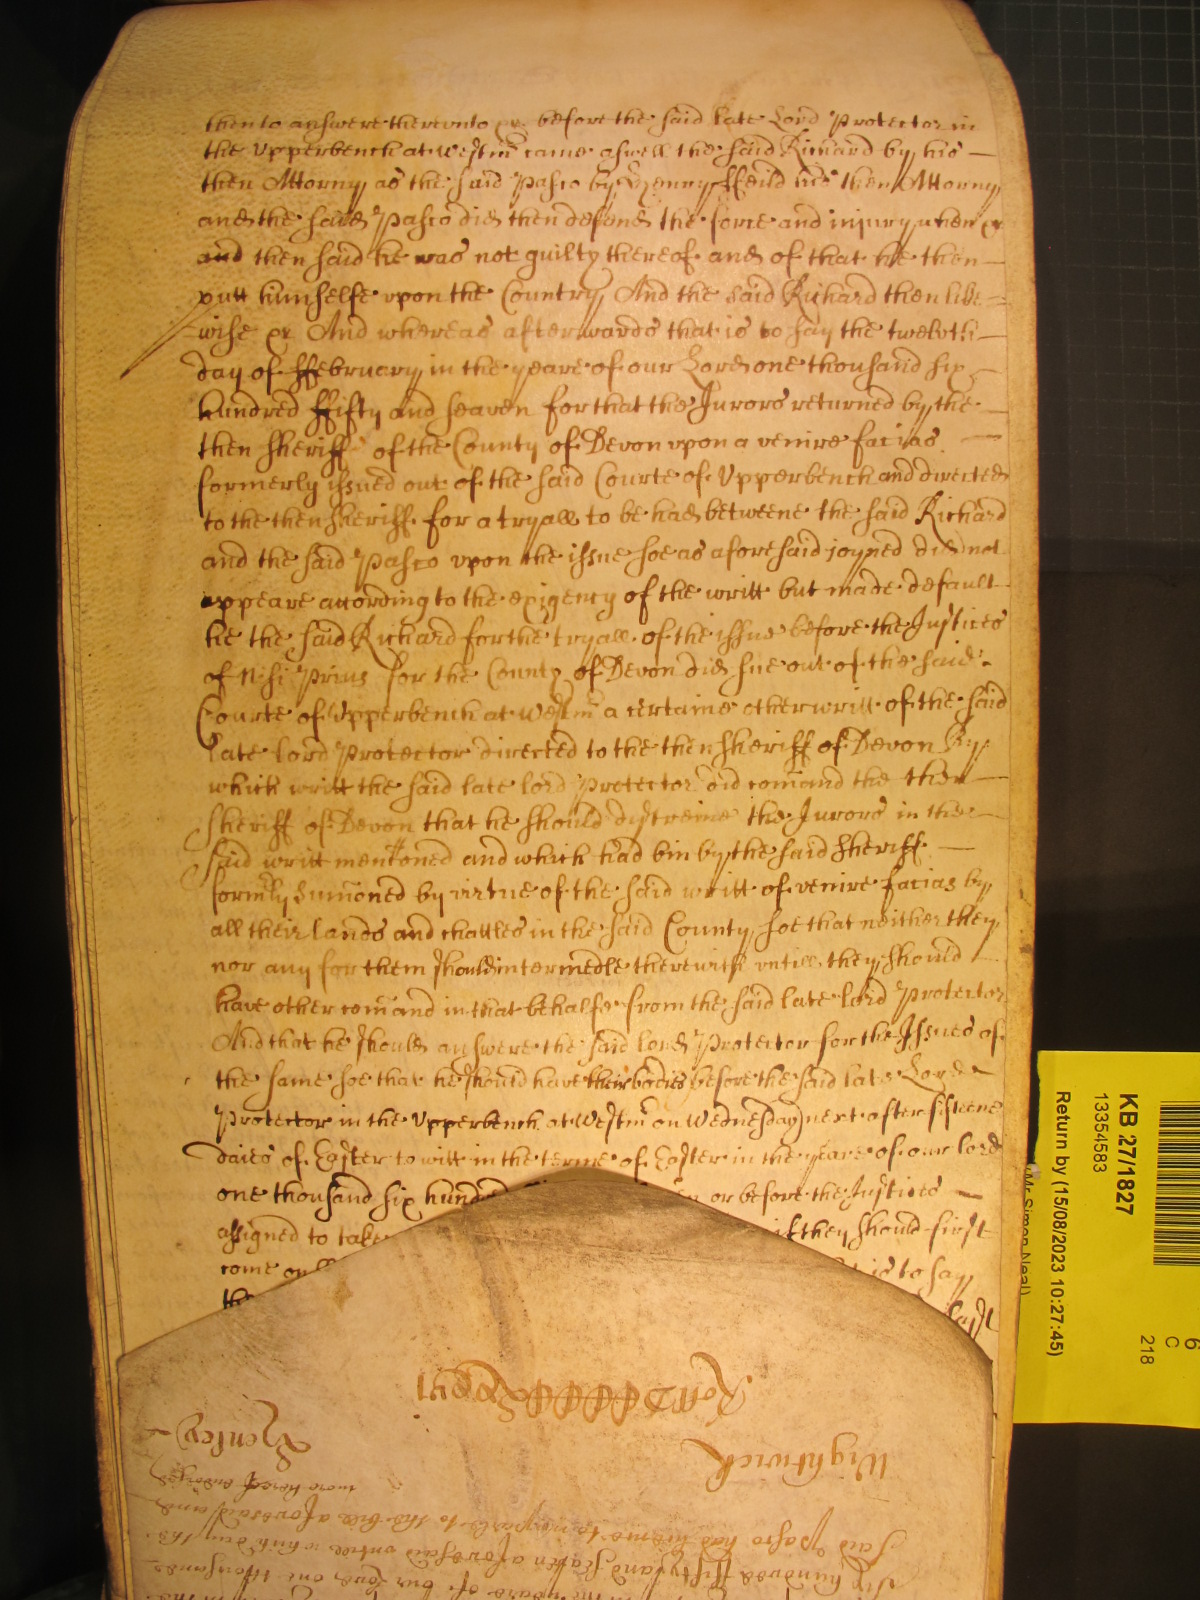 then to answere therevnto &c before the said late Lord Protector in
the Vpperbench at Westmr came aswell the said Richard by his
then Attorny as the said Pasco by Henry ffeild his then Attorny
and the said Pasco did then defend the force and injury when &c
and then said he was not guilty thereof and of that he then
putt himselfe vpon the Country And the said Richard then like=
wise &c And whereas afterwards that is to say the twelveth
day of ffebruary in the yeare of our Lord one thousand six
hundred ffifty and seaven for that the Jurors returned by the
then sheriff of the County of Devon vpon a venire facias
formerly issued out of the said Courte of Vpperbench and directed
to the then sheriff for a tryall to be had betweene the said Richard
and the said Pasco vpon the issue soe as aforesaid joyned did not
appeare according to the exigency of the writt but made default
he the said Richard for the tryall of the issue before the Justices
of Nisi Prius for the County of Devon did sue out of the said
Courte of Vpperbench at Westmr a certaine other writt of the said
late lord Protector directed to the then sheriff of Devon By
which writt the said late lord Protector did comand the then
sheriff of Devon that he should distreine the Jurors in the
said writt mentoned and which had bin by the said sheriff
formly sumoned by virtue of the said writt of venire facias by
all their lands and chattles in the said County soe that neither they
nor any for them should intermedle therewith vntill they should
have other comand in that behalfe from the said late lord Protector
And that he should answere the said lord Protector for the Issues of
the same soe that he should have their bodies before the said late Lord
Protector in the Vpperbench at Westmr on Wednesday next after fifteene
daies of Easter to witt in the terme of Easter in the yeare of our lord
one thousand six hundred or before the Justices
assigned to take if they should first
come on is to say
the last
KB 27/1827
13354583
Return by (15/08/2023 10:27:45)
(Mr Simon Neal)
6
C
218
Wightwick
Henley
more hereof endorsed
said Pasco had licence to imparle to the bill aforesaid and
six hundred ffifty and seaven aforesaid vntill which day the
in the yeare of our Lord one thousand